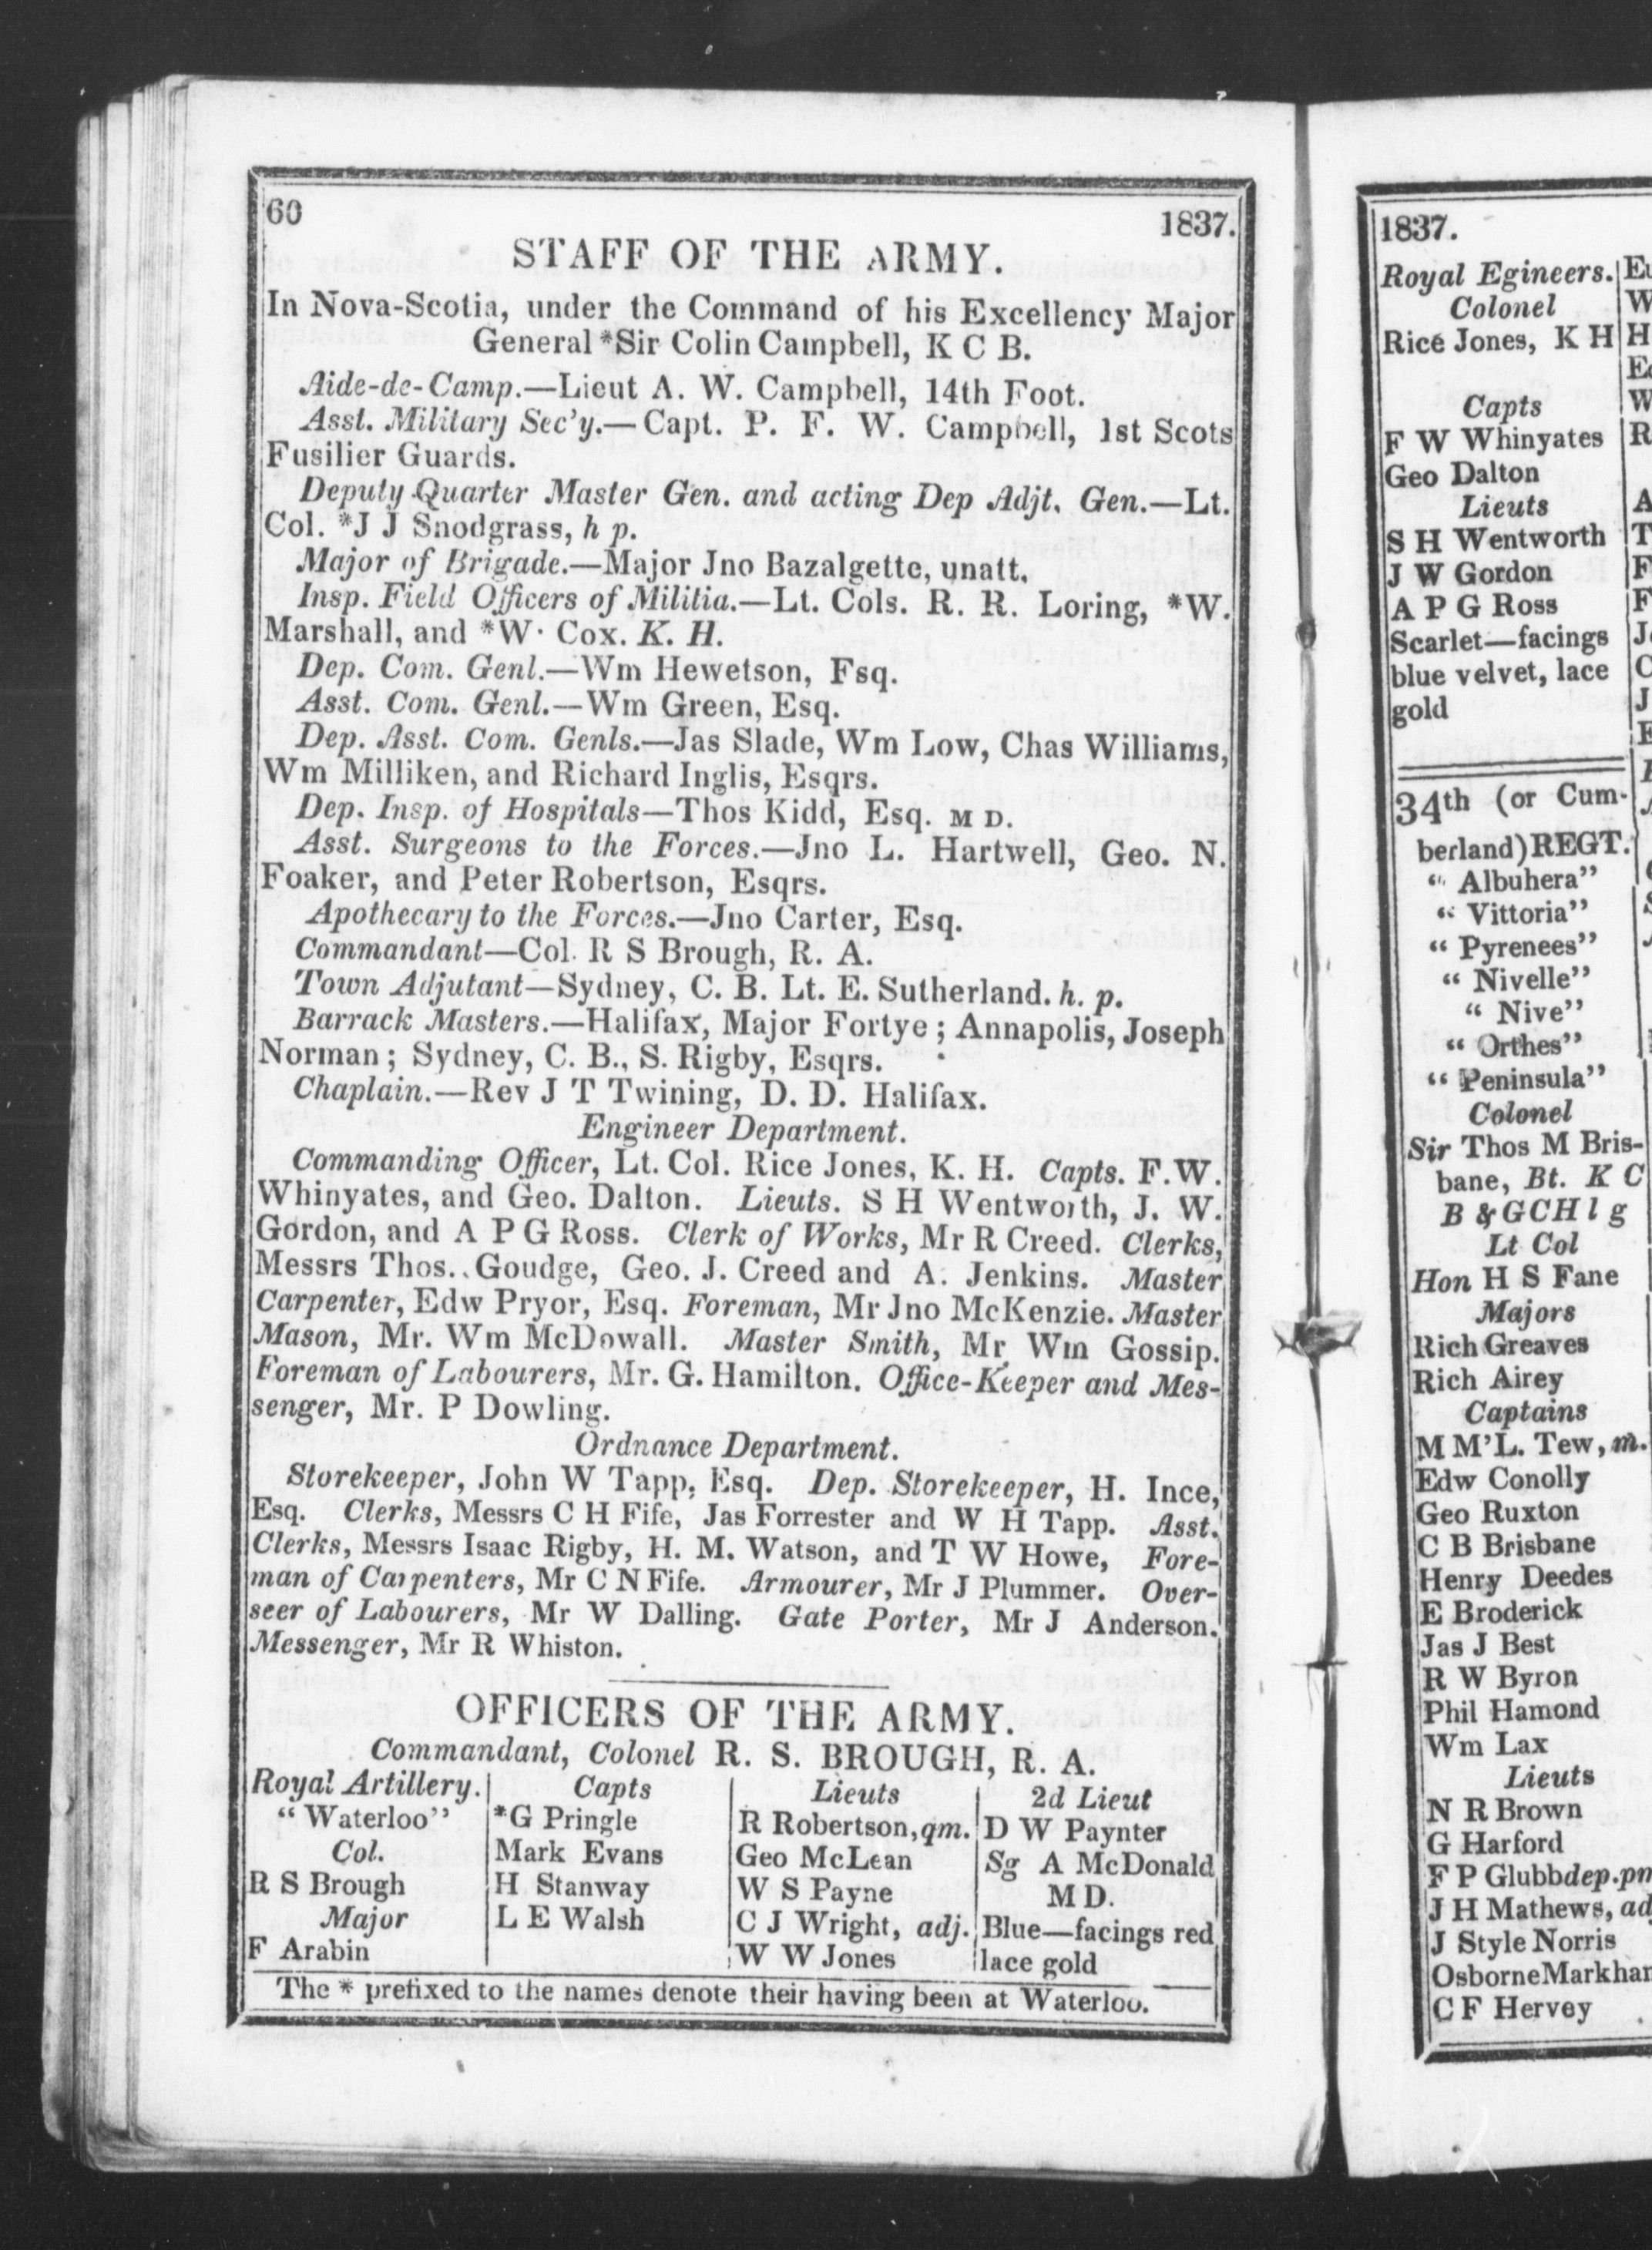 60
1837.
STAFF OF THE ARMY.
In Nova-Scotia, under the Command of his Excellency Major
General *Sir Colin Campbell, K C B.
Aide-de-Camp.—Lieut A. W. Campbell, 14th Foot.
Asst. Military Sec'y.—Capt. P. F. W. Campbell, 1st Scots
Fusilier Guards.
Deputy Quarter Master Gen. and acting Dep Adjt. Gen.—Lt.
Col. *J J Snodgrass, h p.
Major of Brigade.—Major Jno Bazalgette, unatt.
Insp. Field Officers of Militia.—Lt. Cols. R. R. Loring, *W.
Marshall, and *W. Cox. K. H.
Dep. Com. Genl.—Wm Hewetson, Fsq.
Asst. Com. Genl.—Wm Green, Esq.
Dep. Asst. Com. Genls.—Jas Slade, Wm Low, Chas Williams,
Wm Milliken, and Richard Inglis, Esqrs.
Dep. Insp. of Hospitals—Thos Kidd, Esq. M D.
Asst. Surgeons to the Forces.—Jno L. Hartwell, Geo. N.
Foaker, and Peter Robertson, Esqrs.
Apothecary to the Forces.—Jno Carter, Esq.
Commandant—Col. R S Brough, R. A.
Town Adjutant—Sydney, C. B. Lt. E. Sutherland. h. p.
Barrack Masters.—Halifax, Major Fortye; Annapolis, Joseph
Norman; Sydney, C. B., S. Rigby, Esqrs.
Chaplain.—Rev J T Twining, D. D. Halifax.
Engineer Department.
Commanding Officer, Lt. Col. Rice Jones, K. H. Capts. F.W.
Whinyates, and Geo. Dalton. Lieuts. S H Wentworth, J. W.
Gordon, and A P G Ross. Clerk of Works, Mr R Creed. Clerks,
Messrs Thos. Goudge, Geo. J. Creed and A. Jenkins. Master
Carpenter, Edw Pryor, Esq. Foreman, Mr Jno McKenzie. Master
Mason, Mr. Wm McDowall. Master Smith, Mr Wm Gossip.
Foreman of Labourers, Mr. G. Hamilton. Office-Keeper and Mes-
senger, Mr. P Dowling.
Ordnance Department.
Storekeeper, John W Tapp, Esq. Dep. Storekeeper, H. Ince,
Esq. Clerks, Messrs C H Fife, Jas Forrester and W H Tapp. Asst.
Clerks, Messrs Isaac Rigby, H. M. Watson, and T W Howe, Fore-
man of Carpenters, Mr C N Fife. Armourer, Mr J Plummer. Over-
seer of Labourers, Mr W Dalling. Gate Porter, Mr J Anderson.
Messenger, Mr R Whiston.
OFFICERS OF THE ARMY.
Commandant, Colonel R. S. BROUGH, R. A.
Royal Artillery.
"Waterloo"
Col.
R S Brough
Major
F Arabin
Capts
*G Pringle
Mark Evans
H Stanway
L E Walsh
Lieuts
R Robertson, qm.
Geo McLean
W S Payne
C J Wright, adj.
W W Jones
2d Lieut
D W Paynter
Sg A McDonald
M D.
Blue—facings red
lace gold
The * prefixed to the names denote their having been at Waterloo.
1837.
Royal Egineers.
Colonel
Rice Jones, K H
Capts
F W Whinyates
Geo Dalton
Lieuts
S H Wentworth
J W Gordon
A P G Ross
Scarlet—facings
blue velvet, lace
gold
34th (or Cum-
berland) REGT.
"Albuhera"
"Vittoria"
"Pyrenees"
"Nivelle"
"Nive"
"Orthes"
"Peninsula"
Colonel
Sir Thos M Bris-
bane, Bt. K C
B & GCH l g
Lt Col
Hon H S Fane
Majors
Rich Greaves
Rich Airey
Captains
M M'L. Tew, m.
Edw Conolly
Geo Ruxton
C B Brisbane
Henry Deedes
E Broderick
Jas J Best
R W Byron
Phil Hamond
Wm Lax
Lieuts
N R Brown
G Harford
F P Glubb dep.pm
J H Mathews, ad
J Style Norris
Osborne Markhar
C F Hervey